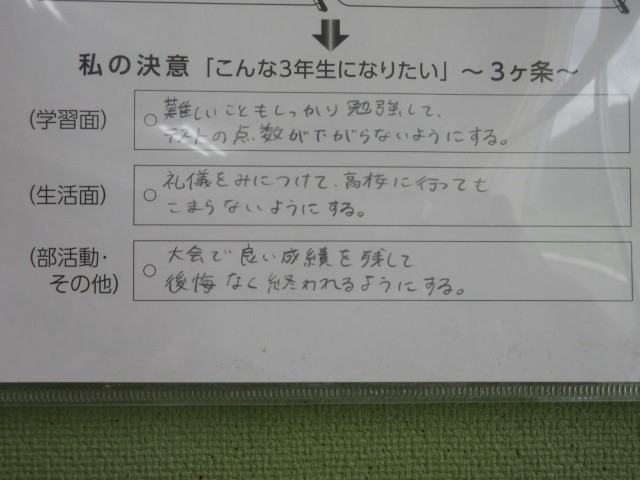 私の決意「こんな3年生になりたい」~3ヶ条~
(学習面)
○難しいこともしっかり勉強して、
テストの点数が下がらないようにする。
(生活面)
○礼儀をみにつけて、高校に行っても
こまらないようにする。
(部活動・
その他)
○大会で良い成績を残して
後悔なく終われるようにする。